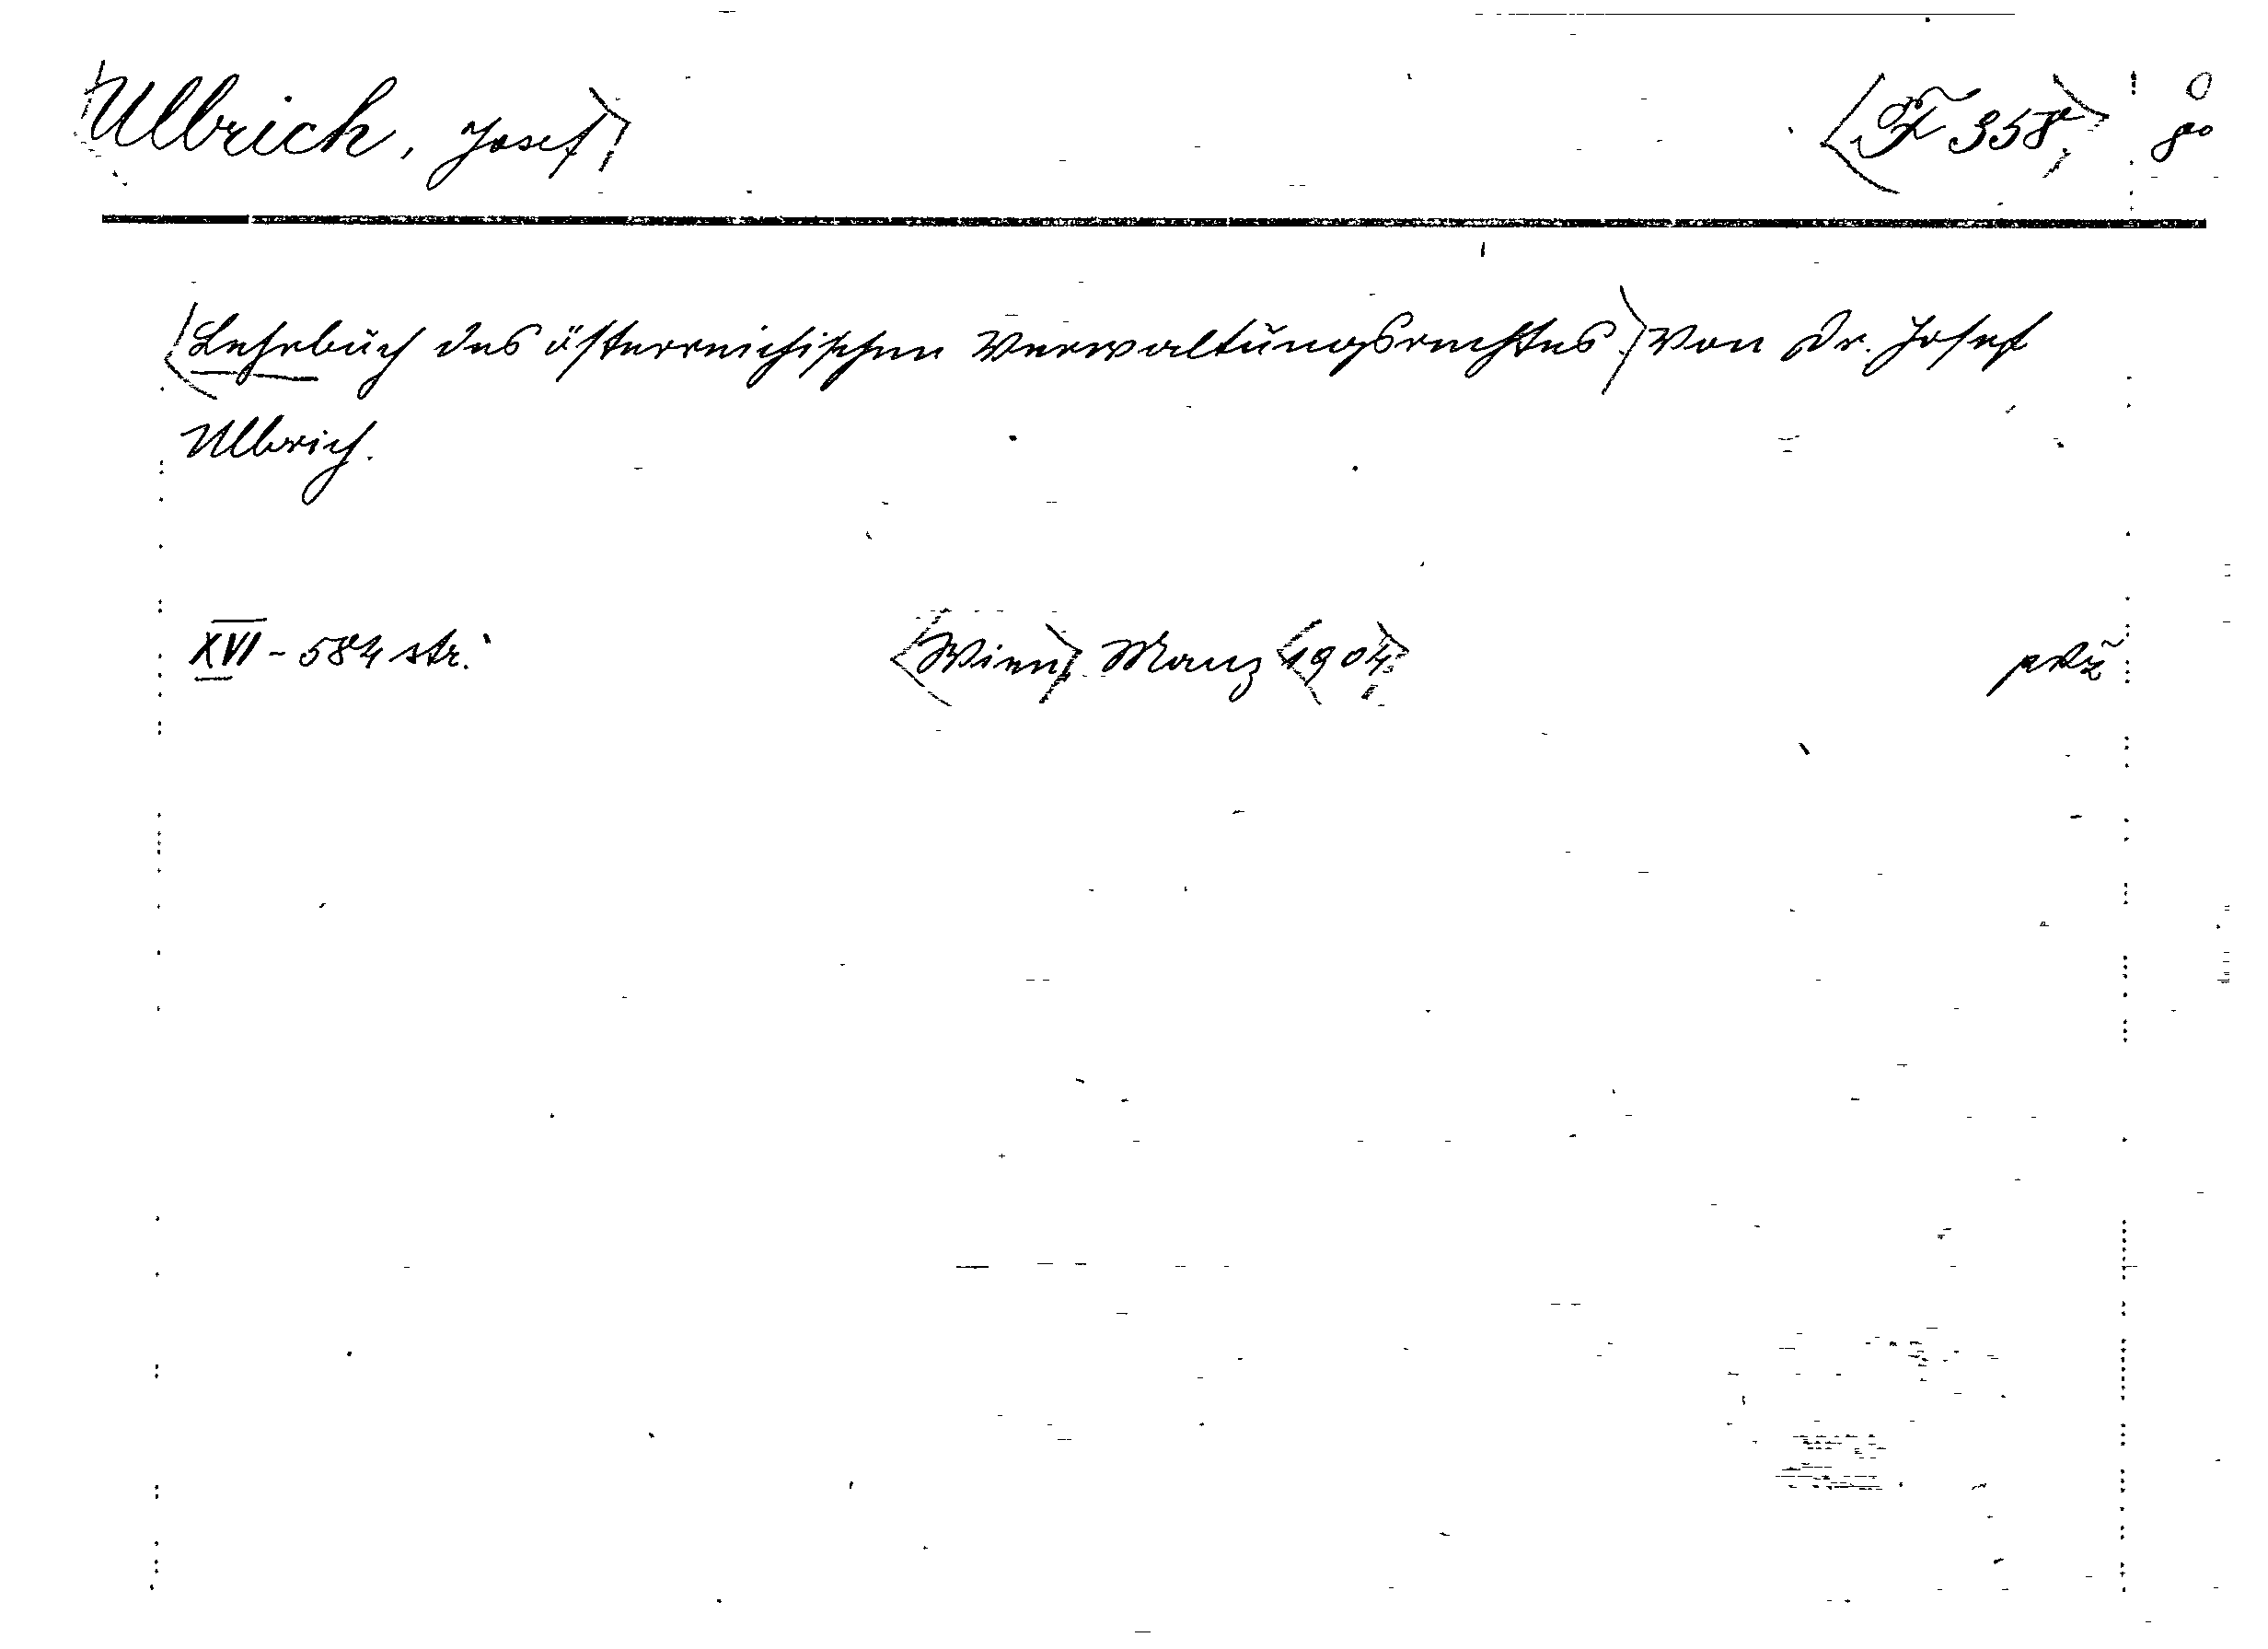 Ulbrich, Josef F 358 8°
Lehrbuch des österreichischen Verwaltungsrechtes. Von Dr. Josef
Ulbrich.
XVI - 584 str. Wien, Manz 1904.